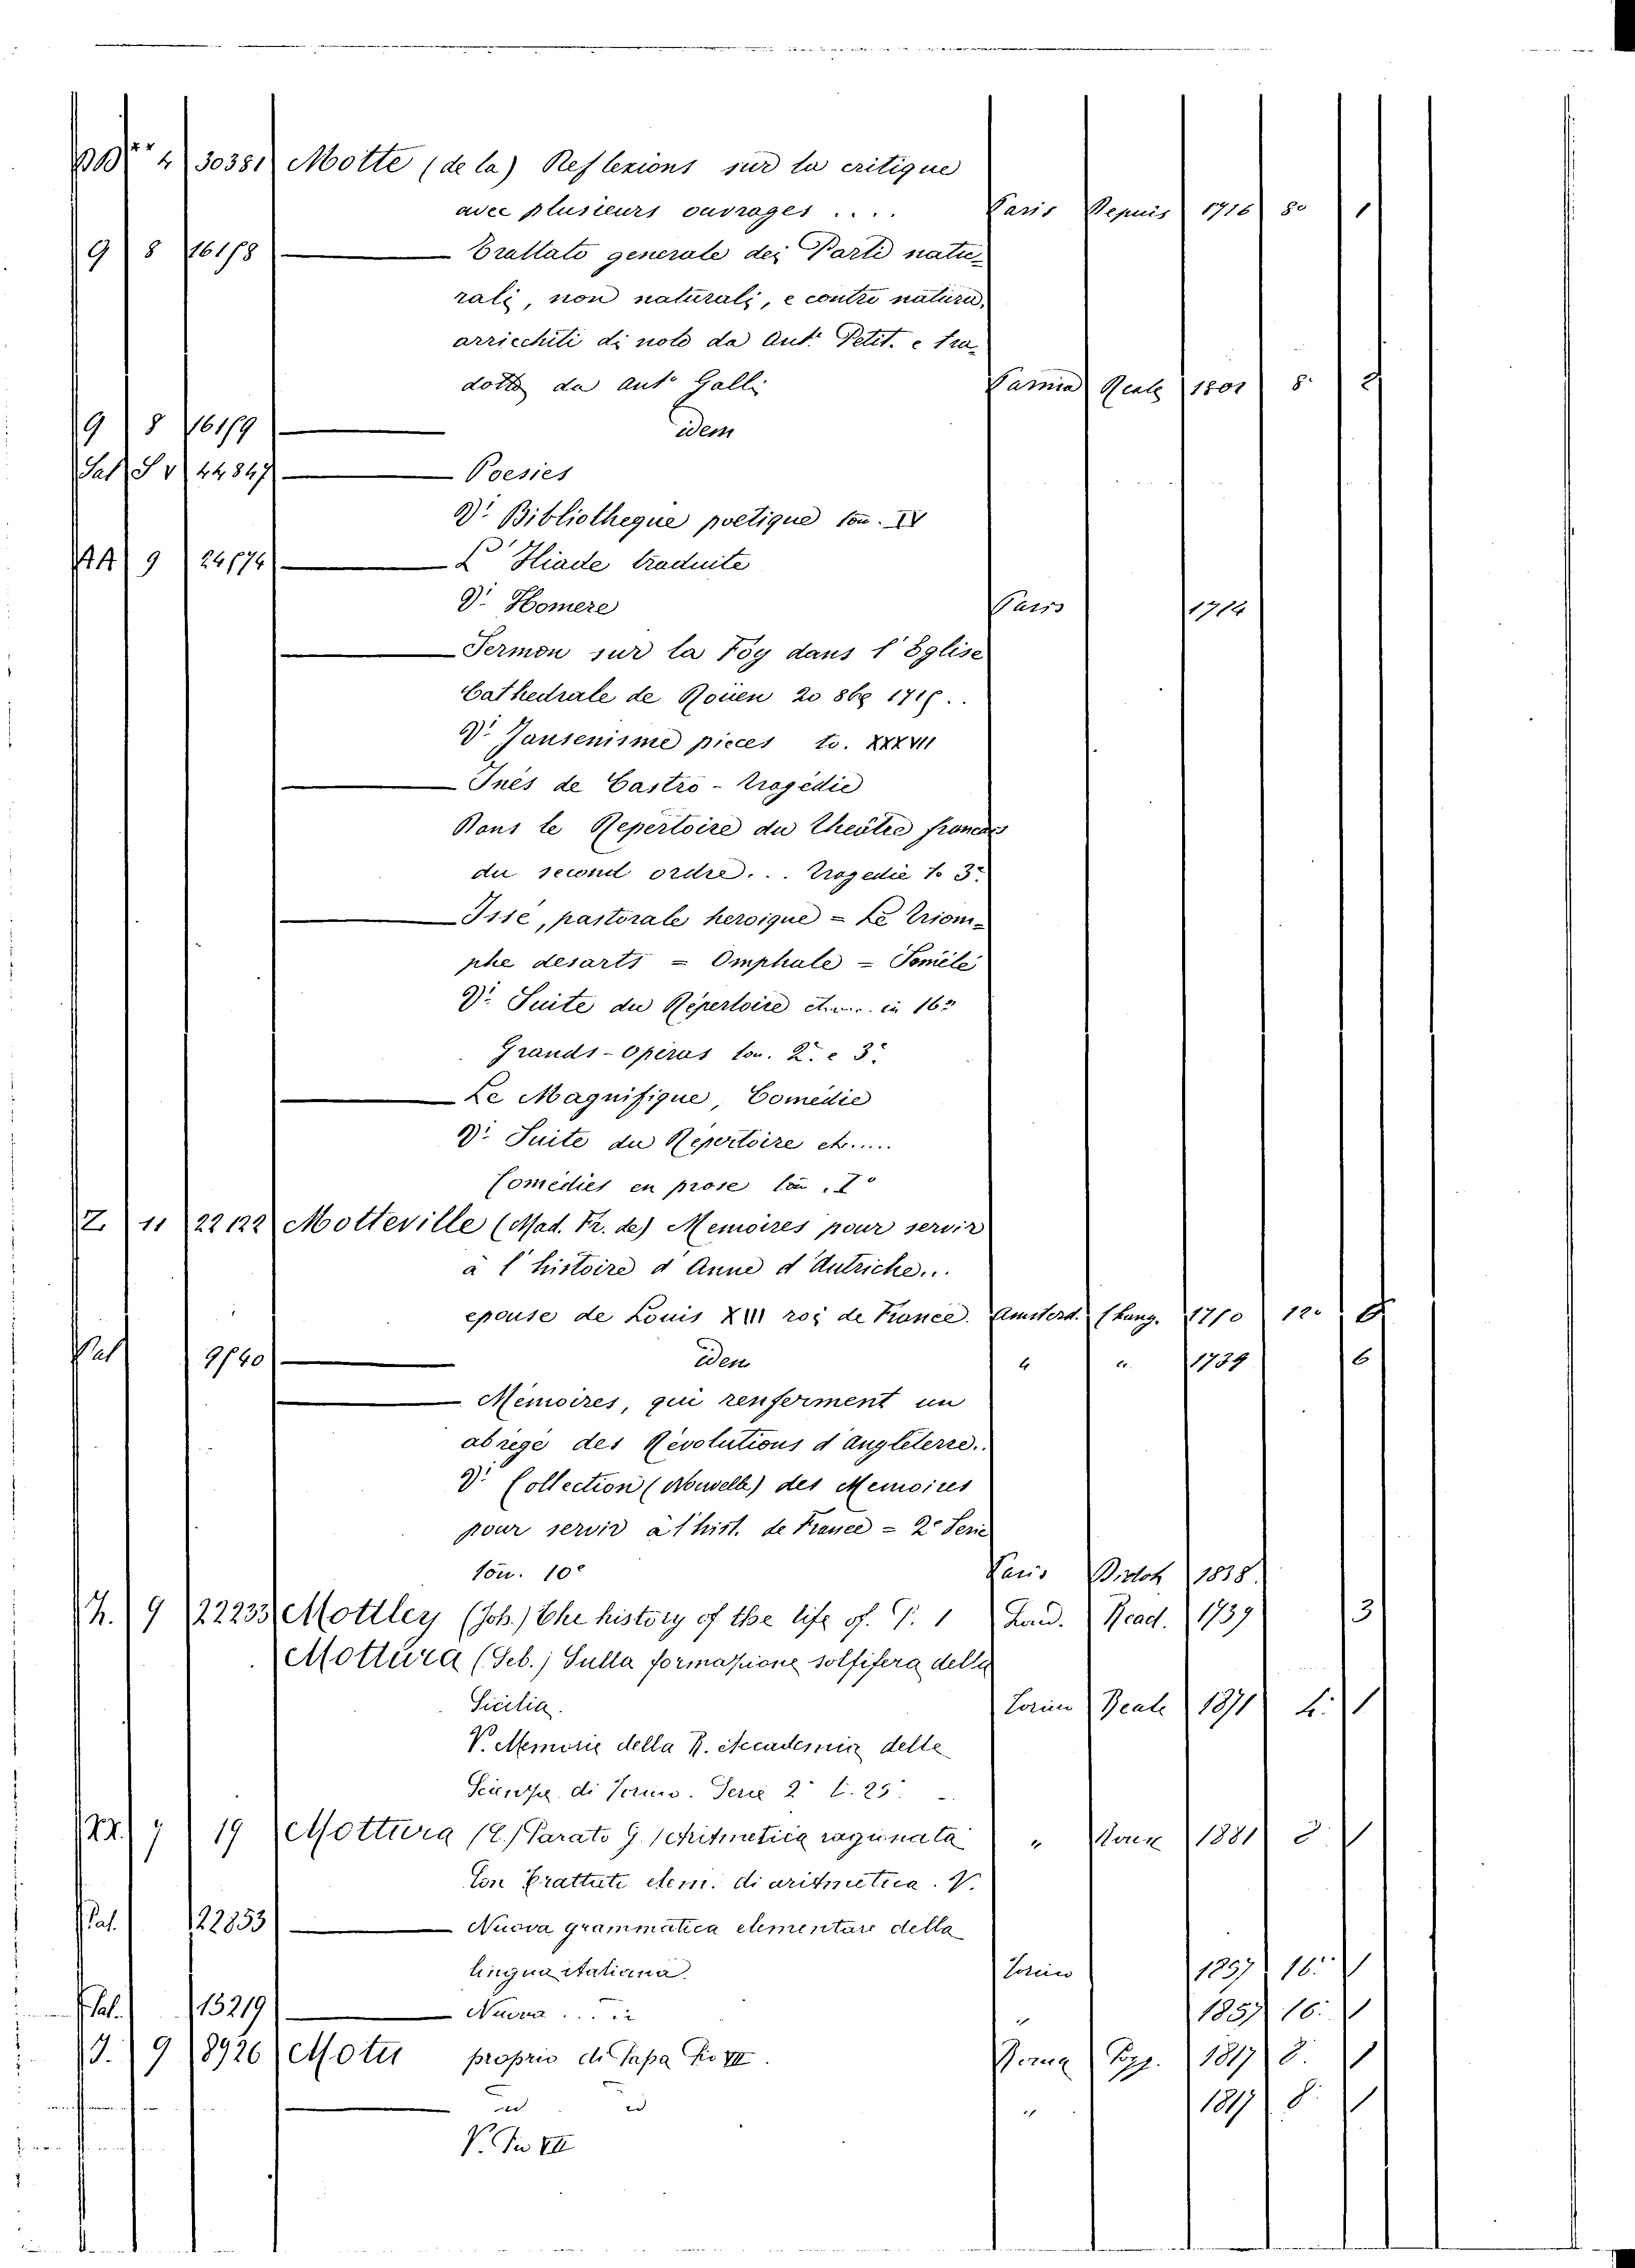 4 30381 Motte (de la) Reflexions sur la critique
avec plusieurs ouvrages .... Paris Depuis 1716 80 1
9 8 16178 Trattato generale dei Parti natu-
rali, non naturali, e contro natura,
arricchiti di note da Ant. Petit. e tra-
dotto da Ant. Galli Parma Reale 1801 8. 2
9 8 16179 idem
Sal S V 44847 Poesies
V. Bibliotheque poetique tom. IV
AA 9 24674 L'Iliade traduite
V. Homere Paris 1714
Sermon sur la Foy dans l'Eglise
Cathedrale de Roüen 20 8bre
V. Jansenisme pieces to. XXXVII
Inès de Castro - tragédie
Dans le Repertoire du theâtre francais
du second ordre... Tragedie to 3.
Issé, pastorale heroique = Le Triom-
phe des arts = Omphale = Semélé
V. Suite du Répertoire in 16º
Grands-Opéras tom. 2. e 3.
Le Magnifique, Comédie
V. Suite du Repertoire etc.....
Comédies en prose tom. Iº
Z. 11 22122 Motteville (Mad. Fr. de) Memoires pour servir
à l'histoire d'Anne d'Autriche...
epouse de Louis XIII roi de France. Amsterd. Chang. 1750 12º 6
Pal 9740 idem " " 1739 6
Mémoires, qui renferment un
abrégé des Révolutions d'Angleterre..
V. Collection (Nouvelle) des Memoires
pour servir à l'hist. de France = 2e Serie
tom. 10º Paris Didot 1838.
h. 9 22233 Mottley (Joh.) The history of the life of P. 1 Lond. Read. 1739 3
Mottura (Seb.) Sulla formazione solfifera della
Sicilia. Torino Reale 1871 4. 1
V. Memorie della R. Accademia delle
Scienze di Torino. Serie 2ª t. 25º
7 19 Mottura (C.) Parato G. Aritmetica ragionata " 1881 8. 1
Con Trattati elem. di aritmetica. V.
Pal. 22853 Nuova grammatica elementare della
lingua italiana. Torino 1857 16. 1
Pal. 15219 Nuova .... " 1857 16. 1
J. 9 8926 Motu proprio di Papa Pio VII. Roma Pogg. 1817 8. 1
id id " 1817 8. 1
V. Pio VII